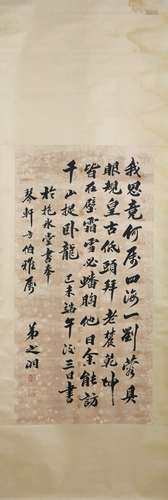 我思竟何屬四海一劉蓉具
眼規皇古低頭拜老農乾坤
皆在壁霜雪必蟠胸他日余能訪
千山捉臥龍 己未端午後三日書
於抱冰堂書奉
琴軒方伯雅屬
弟之洞